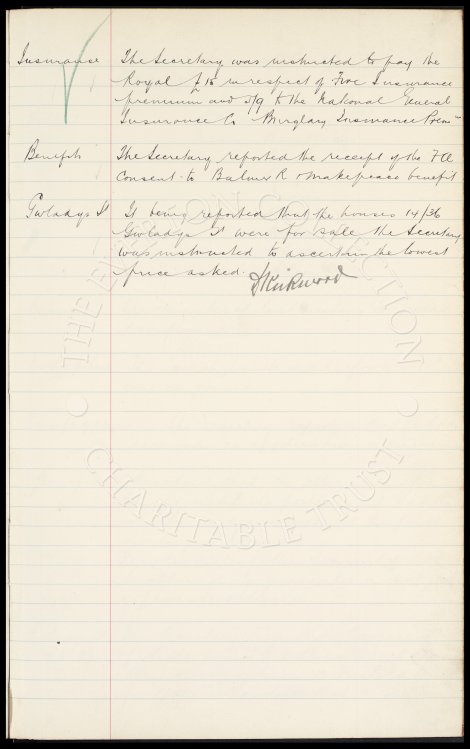 Insurance The Secretary was instructed to pay the
Royal £15 in respect of Fire Insurance
premium and 5/9 to the National General
Insurance Co Burglary Insurance Prem
Benefits The Secretary reported the receipt of the F A
Consent to Balmer R & Makepeace benefit
Gwladys St It being reported that the houses 14/36
Gwladys St were for sale the Secretary
was instructed to ascertain the lowest
price asked.
Kirkwood
THE EVERTON COLLECTION
CHARITABLE TRUST